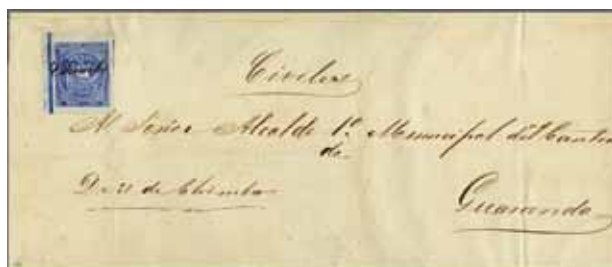 Civiles
Al Señor Alcalde 1º. Municipal del Canton
de
de Chimbo
Guaranda